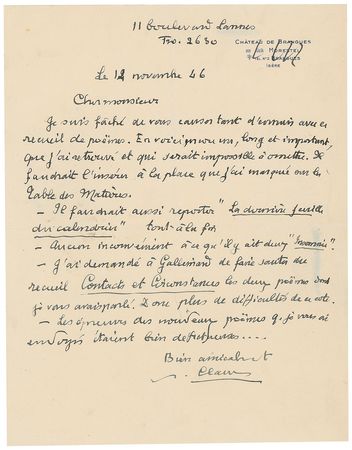 11 boulevard Lannes
Tro. 2630
CHÂTEAU DE BRANGUES
MORESTEL
ISÈRE
Le 12 novembre 46
Cher monsieur
Je suis fâché de vous causer tant d'ennuis avec ce
recueil de poëmes. En voici un, long et important,
que j'ai retrouvé et qui serait impossible à omettre. Il
faudrait l'insérer à la place que j'ai marquée sur les
Table des Matières.
- Il faudrait aussi reporter "La dernière feuille
du calendrier" tout à la fin
- Aucun inconvénient à ce qu'il y ait deux "Insomnie".
- J'ai demandé à Gallimard de faire sauter du
recueil Contacts et Circonstances les deux poëmes dont
je vous avais parlé. Donc plus de difficultés de ce côté.
- Les épreuves des nouveaux poëmes q. je vous ai
envoyés étaient bien défectueuses....
Bien amicalement
Claudel